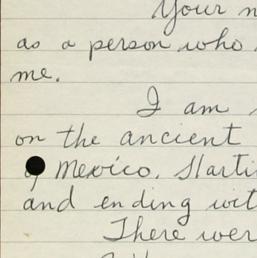 Your n
as a person who
me.
I am
on the ancient
of Mexico. Starti
and ending wit
There wer